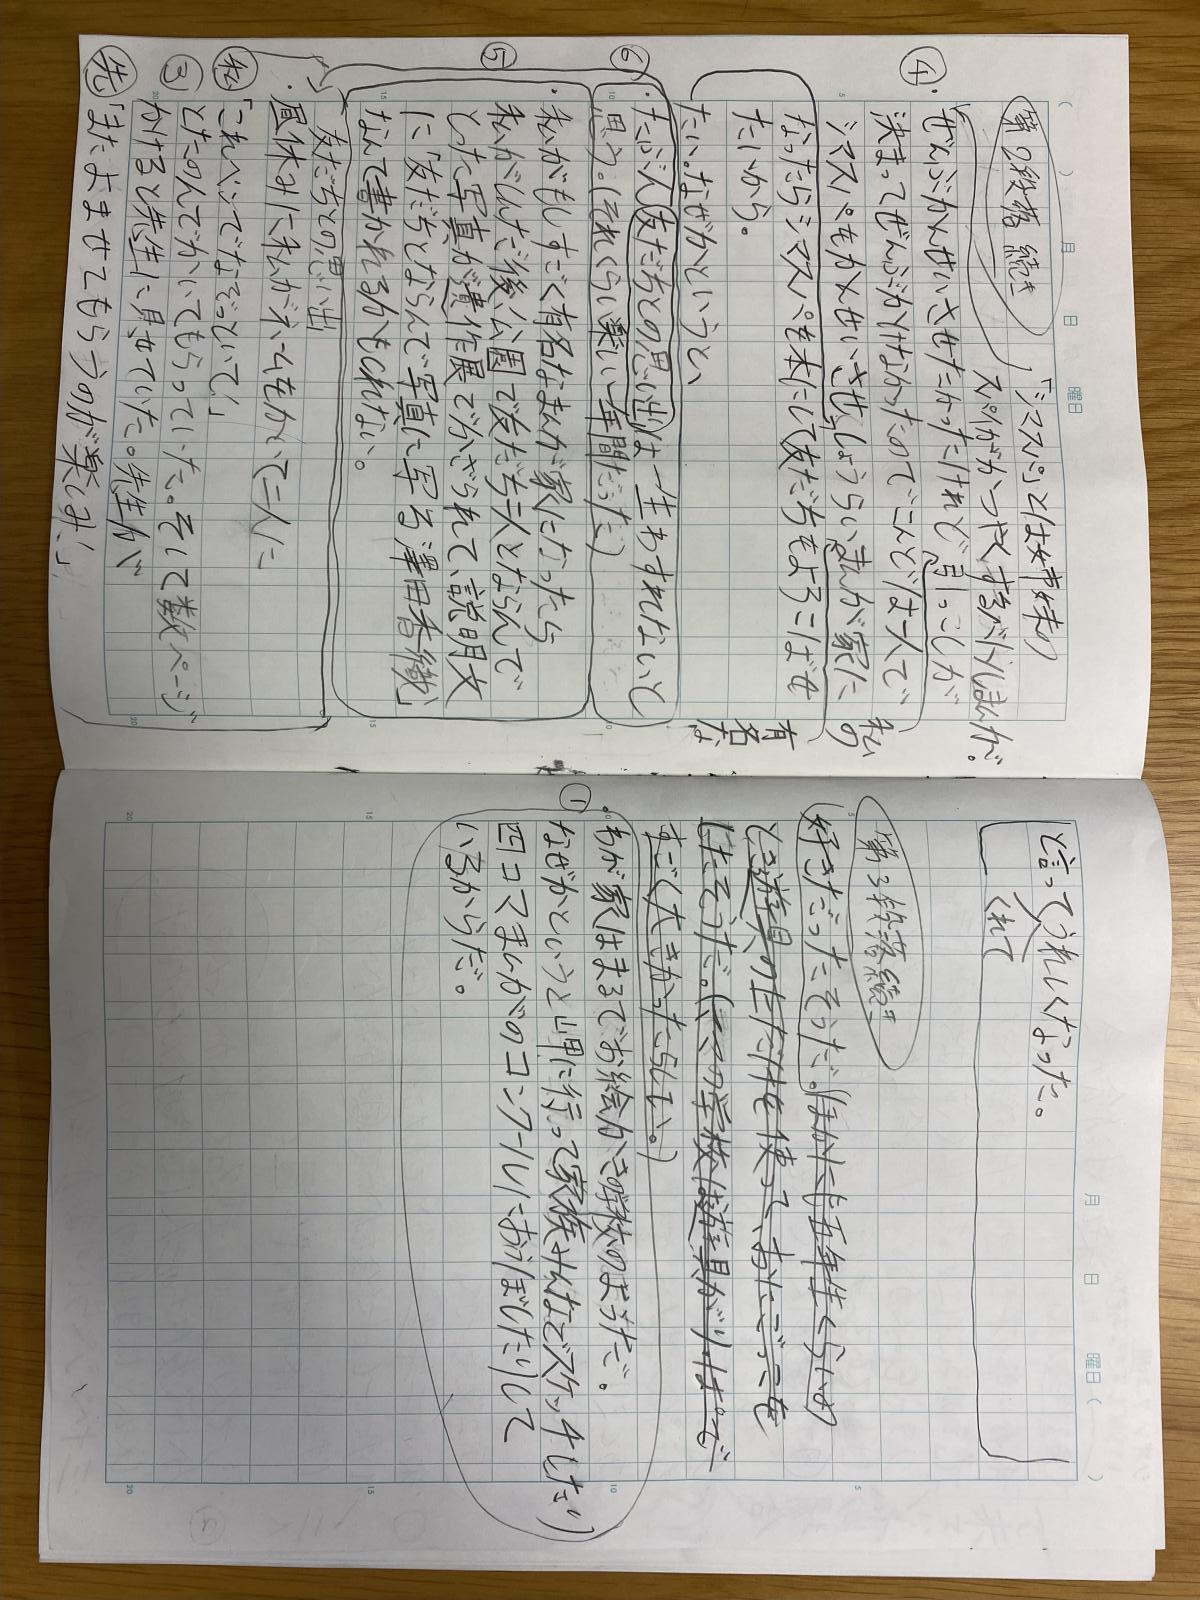 第2段落 続き
「シマスパ」とは姉妹の
スパイがかつやくするバトルまんが。
④
・ぜんぶかんせいさせたかったけれど引っこしが
決まってぜんぶかけなかったのでこんどは一人で
シマスパをかんせいさせ、しょうらいまんが家に
私の
なったらシマスパを本にして友だちをよろこばせ
たいから。
有名な
たい。なぜかというと、
⑥
・たぶん友だちとの思い出は一生わすれないと
思う。(それくらい楽しい一年間だった)
⑤
・私がもしすごく有名なまんが家になったら
私がしんだ後、公園で友だち二人とならんで
とった写真が遺作展でかざられて、説明文
に「友だちとならんで写真に写る澤田杏織」
なんて書かれるかもしれない。
友だちとの思い出
・昼休みに私がネームをかいて二人に
私
「これペンでなぞっといて」
③
とたのんでかいてもらっていた。そして数ページ
かけると先生に見せていた。先生が
先
「またよませてもらうのが楽しみ!」
と言ってうれしくなった。
くれて
第3段落続き
好きだったそうだ。ほかにも五年生くらいの
とき遊具の上だけを使って、おにごっこを
したそうだ。(ママの学校は遊具がりっぱで
すごく大きかったらしい。)
①
・わが家はまるでお絵かき学校のようだ。
なぜかというと岬に行って家族みんなでスケッチしたり
四コマまんがのコンクールにおうぼしたりして
いるからだ。